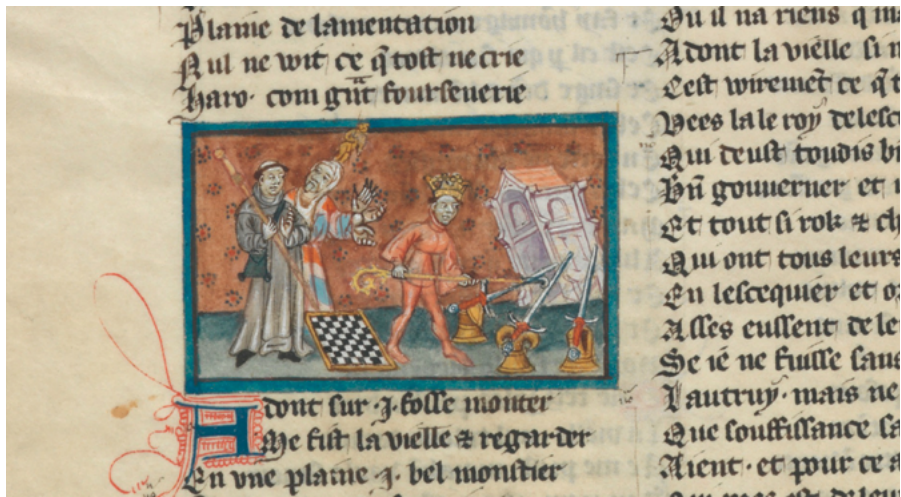 Plaine de lamentation
Nul ne wit ce q̄ tost ne crie
Haro · com gn̄t fourseuerie
Adont sur · j · fosse monter
Me fist la vielle ⁊ regarder
En vne plaine · j · bel monstier
Qu il na riens q̄
Adont la vielle si
Cest voiremēt ce q̄
Vees la le roy de
Qui deust toudis
Bn̄ gouuerner et
Et tout si rok ⁊
Qui ont tous leurs
En lescequier et
Asses eussent de
Se ie ne fuisse
Lautruy · mais ne
Que souffissance
Aient · et pour ce